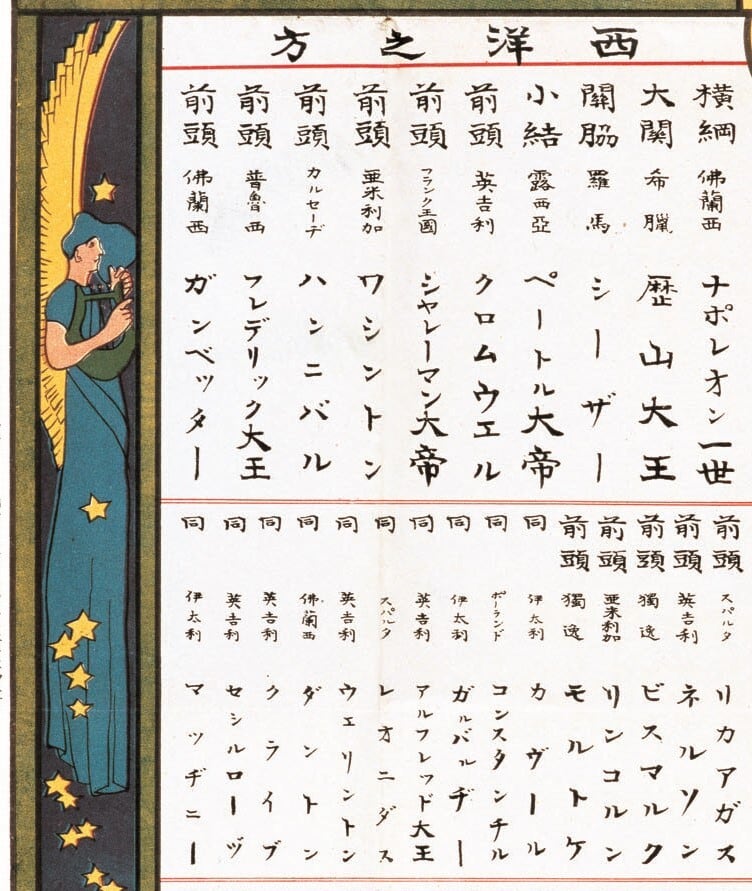 西洋之方
横綱 佛蘭西 ナポレオン一世
大関 希臘 歴山大王
關脇 羅馬 シーザー
小結 露西亞 ペートル大帝
前頭 英吉利 クロムウエル
前頭 フランク王國 シヤレーマン大帝
前頭 亜米利加 ワシントン
前頭 カルセーデ ハンニバル
前頭 普魯西 フレデリック大王
前頭 佛蘭西 ガンベッター
前頭 スパルタ リカアガス
前頭 英吉利 ネルソン
前頭 獨逸 ビスマルク
前頭 亜米利加 リンコルン
前頭 獨逸 モルトケ
同 伊太利 カヴール
同 ポーランド コンスタンチル
同 伊太利 ガルバルヂー
同 英吉利 アルフレッド大王
同 スパルタ レオニダス
同 英吉利 ウェリントン
同 佛蘭西 ダントン
同 英吉利 クライブ
同 英吉利 セシルローヅ
同 伊太利 マッヂニー